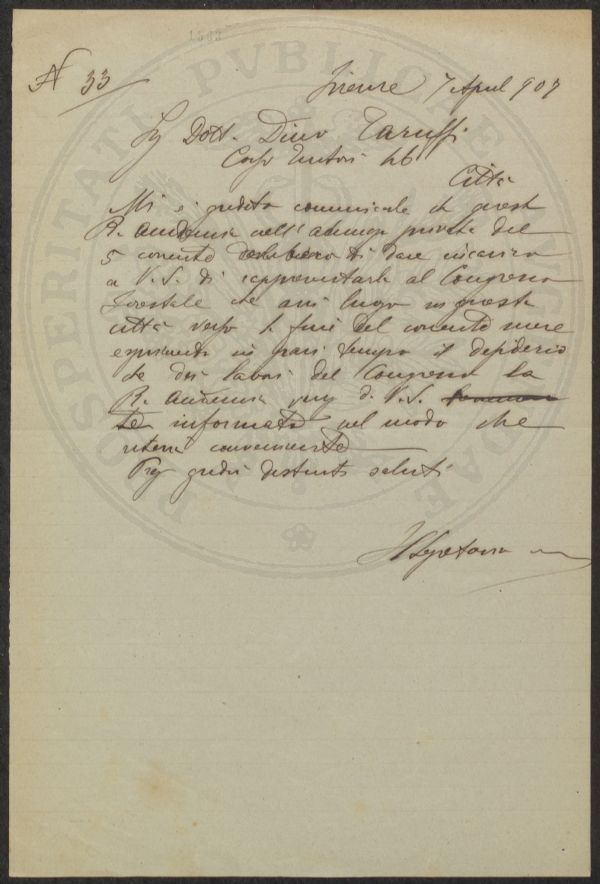 1503
N 33
Firenze 7 April 909
Sg Dott. Dino Taruffi
Corso Tintori 46
Città
Mi è gradito comunicarle che questa
R. Accademia nell'adunanza privata del
5 corrente deliberò di dare incarico
a V.S. di rappresentarla al Congresso
Forestale che avrà luogo in questa
città verso la fine del corrente mese
esprimendo in pari tempo il desiderio
che dei lavori del Congresso la
R. Accademia per d. V.S.
informata nel modo che
riterrà conveniente
Pregi gradire distinti saluti
Il Segretario
PROSPERITATI PVBLICAE AVGENDAE